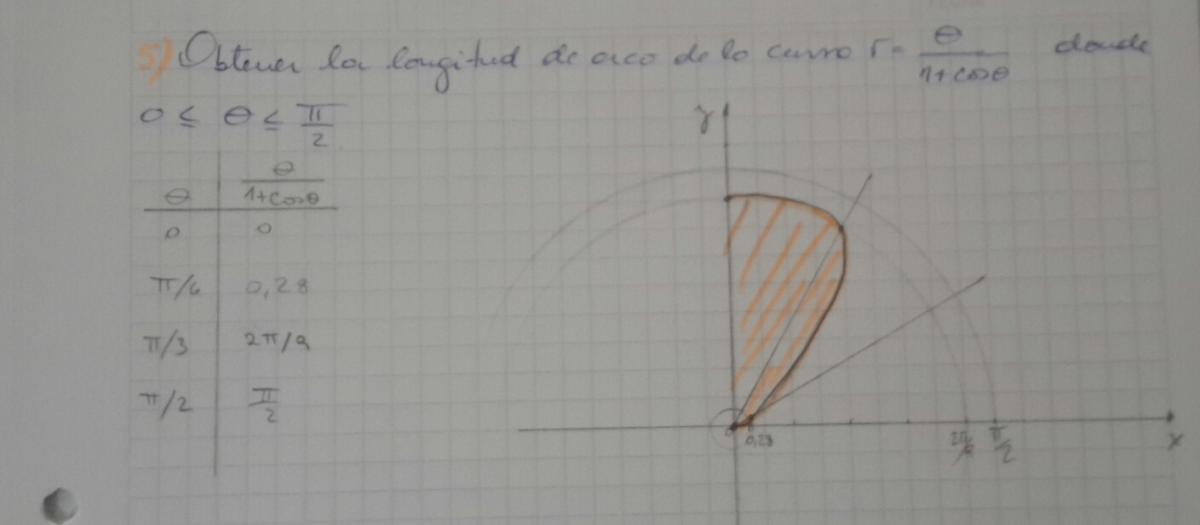 5) Obtener la longitud de arco de la curva r = θ/(1+cosθ) donde
0 ≤ θ ≤ π/2
θ | θ/(1+cosθ)
0 | 0
π/6 | 0,28
π/3 | 2π/9
π/2 | π/2
y
0,28 2π/9 π/2
x